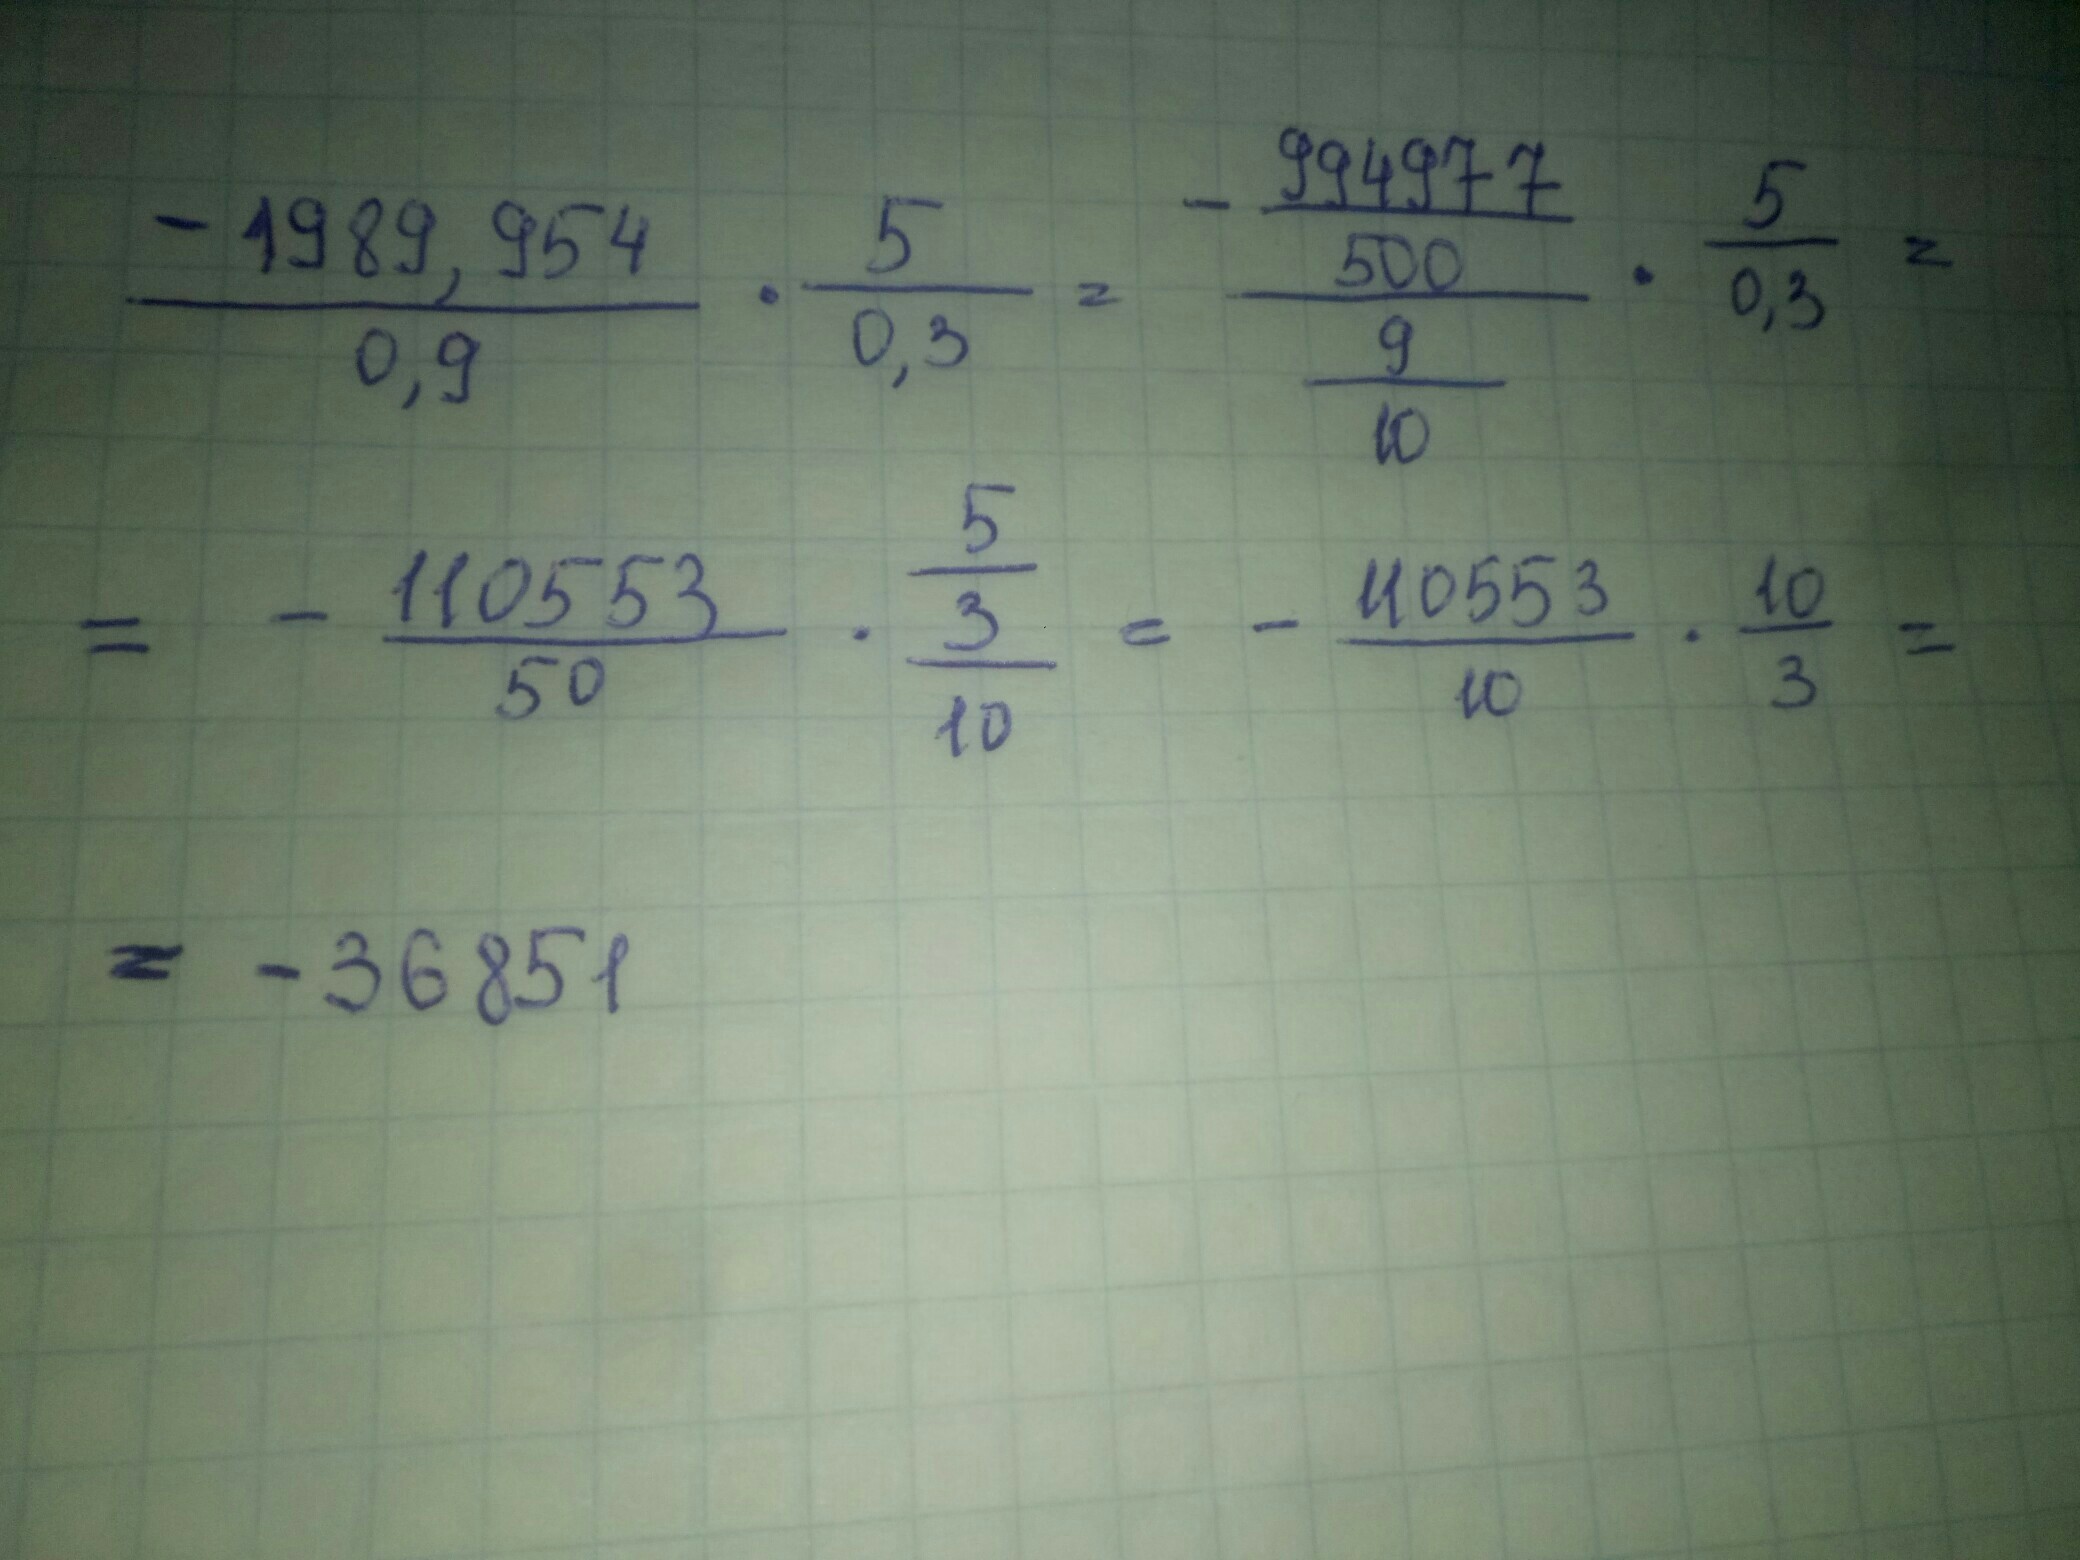 -1989,954/0,9 · 5/0,3 = - 994977/500/9/10 · 5/0,3 =
= - 110553/50 · 5/3/10 = - 110553/10 · 10/3 =
= -36851